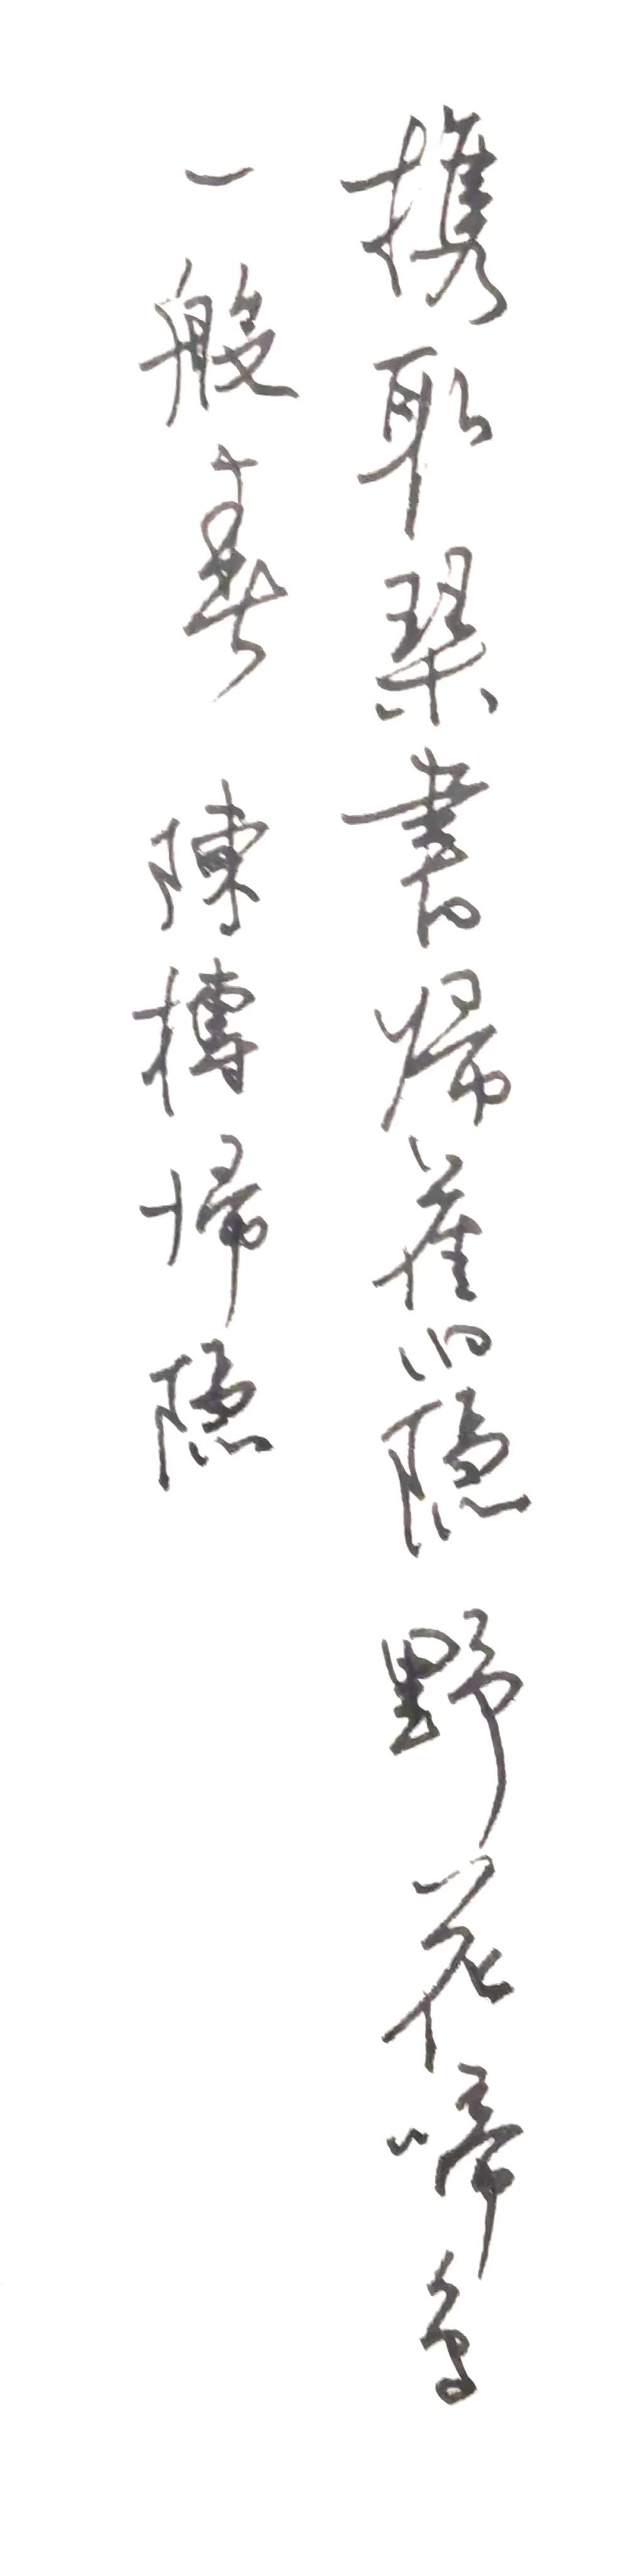 携取琹書帰舊隱野花啼鳥
一般春 陳摶帰隱